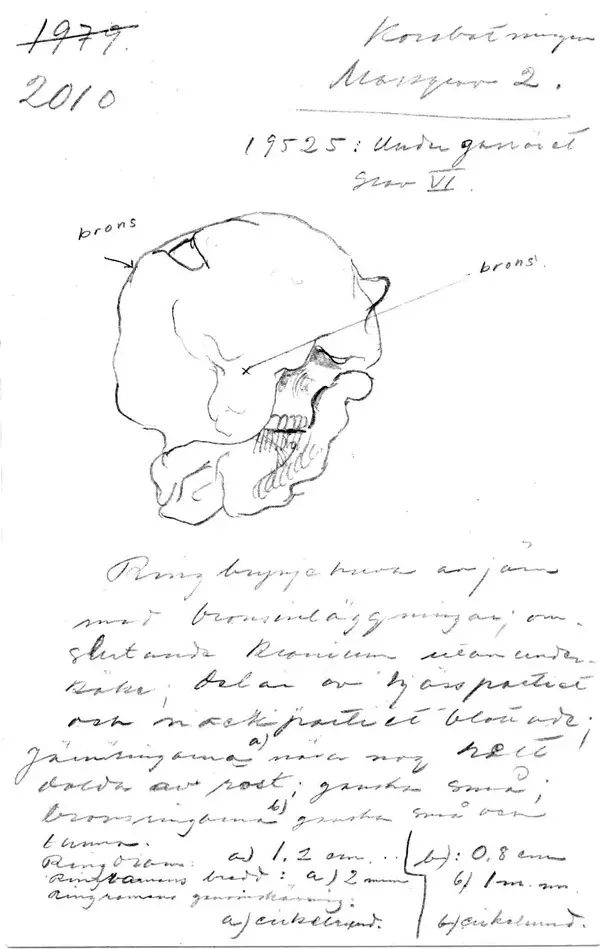 1979.
2010
Korsbetningen
Massgrav 2.
19525: Under gasröret
Grav VI.
brons
brons.
Ringbrynjehuva av järn
med bronsinläggningar, om-
slutande kranium utan under-
käke; delar av hjässpartiet
och nackpartiet blottade;
järnringarna a) nära nog helt
dolda av rost; ganska små;
bronsringarna b) ganska små och
tunna.
Ringdiam: a) 1.2 cm... b): 0.8 cm
Ringramens bredd: a) 2 mm b) 1 m.m.
Ringramens genomskärning:
a) cirkelrund. b) cirkelrund.